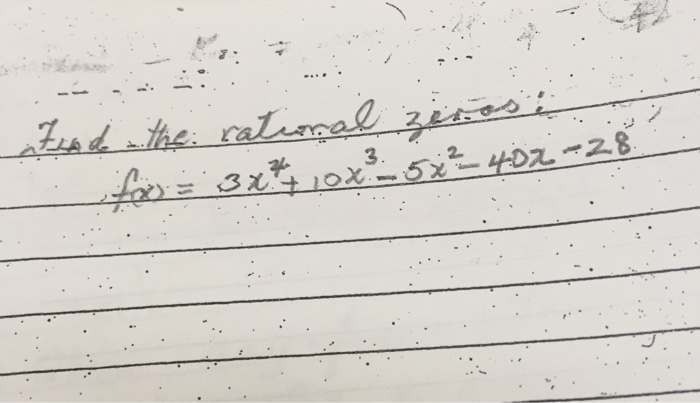 Find the rational zeros:
f(x) = 3x⁴ + 10x³ - 5x² - 40x - 28